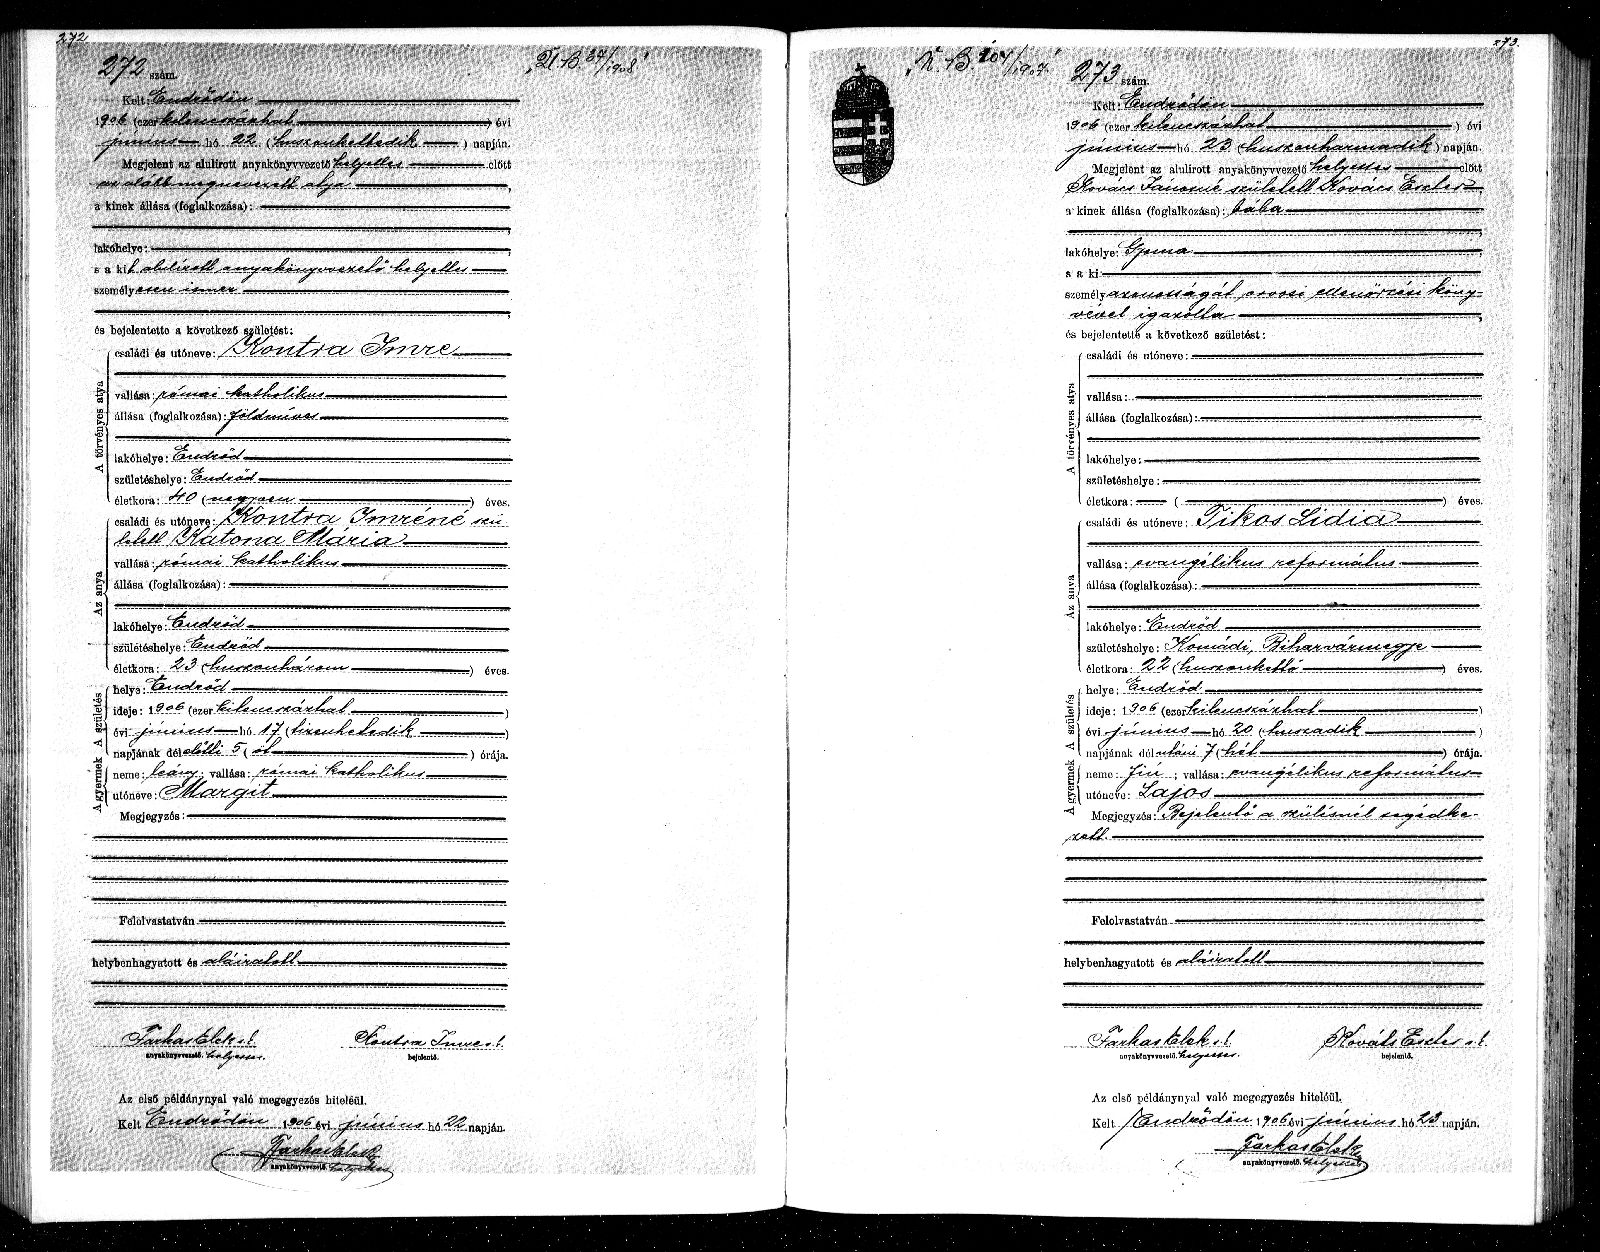 272
272 szám.
Ü. B. 34/1908
Kelt: Endrődön
1906 (ezer kilenczszázhat ) évi
június hó 22 (huszonkettedik ) napján.
Megjelent az alulirott anyakönyvvezető helyettes előtt
az alább megnevezett atya ,
a kinek állása (foglalkozása):
lakóhelye:
s a kit alulírott anyakönyvvezető helyettes
személyesen ismer
és bejelentette a következő születést:
A törvényes atya
családi és utóneve: Kontra Imre
vallása: római katholikus
állása (foglalkozása): földmüves
lakóhelye: Endrőd
születéshelye: Endrőd
életkora: 40 (negyven ) éves.
Az anya
családi és utóneve: Kontra Imréné szü-
letett Katona Mária
vallása: római katholikus
állása (foglalkozása):
lakóhelye: Endrőd
születéshelye: Endrőd
életkora: 23 (huszonhárom ) éves.
A születés
helye: Endrőd
ideje: 1906 (ezer kilenczszázhat )
évi június hó 17 (tizenhetedik )
napjának délelőtti 5 (öt ) órája.
A gyermek
neme: leány; vallása: római katholikus
utóneve: Margit
Megjegyzés:
Felolvastatván
helybenhagyatott és aláíratott
Farkas Elek s.k. Kontra Imre s.k.
anyakönyvvezető helyettes. bejelentő.
Az első példánynyal való megegyezés hiteléül.
Kelt Endrődön 1906 évi június hó 22 napján.
Farkas Elek
anyakönyvvezető helyettes
273.
Ü. B. 104/1907.
273 szám.
Kelt: Endrődön
1906 (ezer kilenczszázhat ) évi
június hó 23 (huszonharmadik ) napján.
Megjelent az alulirott anyakönyvvezető helyettes előtt
Kovács Jánosné született Kovács Eszter ,
a kinek állása (foglalkozása): bába
lakóhelye: Gyoma
s a ki
személyazonosságát orvosi ellenőrzési köny-
vével igazolta
és bejelentette a következő születést:
A törvényes atya
családi és utóneve:
vallása:
állása (foglalkozása):
lakóhelye:
születéshelye:
életkora: ( ) éves.
Az anya
családi és utóneve: Tikos Lidia
vallása: evangélikus református
állása (foglalkozása):
lakóhelye: Endrőd
születéshelye: Komádi, Biharvármegye
életkora: 22 (huszonkettő ) éves.
A születés
helye: Endrőd
ideje: 1906 (ezer kilenczszázhat )
évi június hó 20 (huszadik )
napjának délutáni 7 (hét ) órája.
A gyermek
neme: fiú; vallása: evangélikus református
utóneve: Lajos
Megjegyzés: Bejelentő a szülésnél segédke-
zett.
Felolvastatván
helybenhagyatott és aláíratott
Farkas Elek s.k. Kováts Eszter s.k.
anyakönyvvezető helyettes. bejelentő.
Az első példánynyal való megegyezés hiteléül.
Kelt Endrődön 1906 évi június hó 23 napján.
Farkas Elek
anyakönyvvezető helyettes